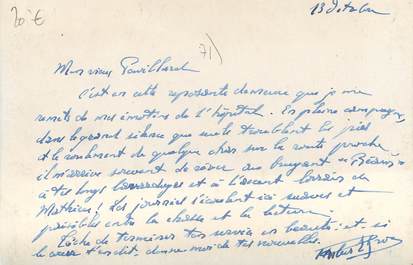 20 €
13 Octobre
71)
Mon vieux
C'est en cette reposante demeure que je me
remets de mes émotions de l'hôpital. En pleine campagne,
dans le grand silence que seuls troublent les pies
et le roulement de quelque char sur la route proche
il m'arrive souvent de rêver au bruyant
à tes longs et à l'accent lorrain de
Mathieu! Les journées s'écoulent ici suaves et
paisibles entre la chasse et la lecture.
Tâche de terminer ton service en beauté: et, si
le cœur t'en dit, donne moi de tes nouvelles.